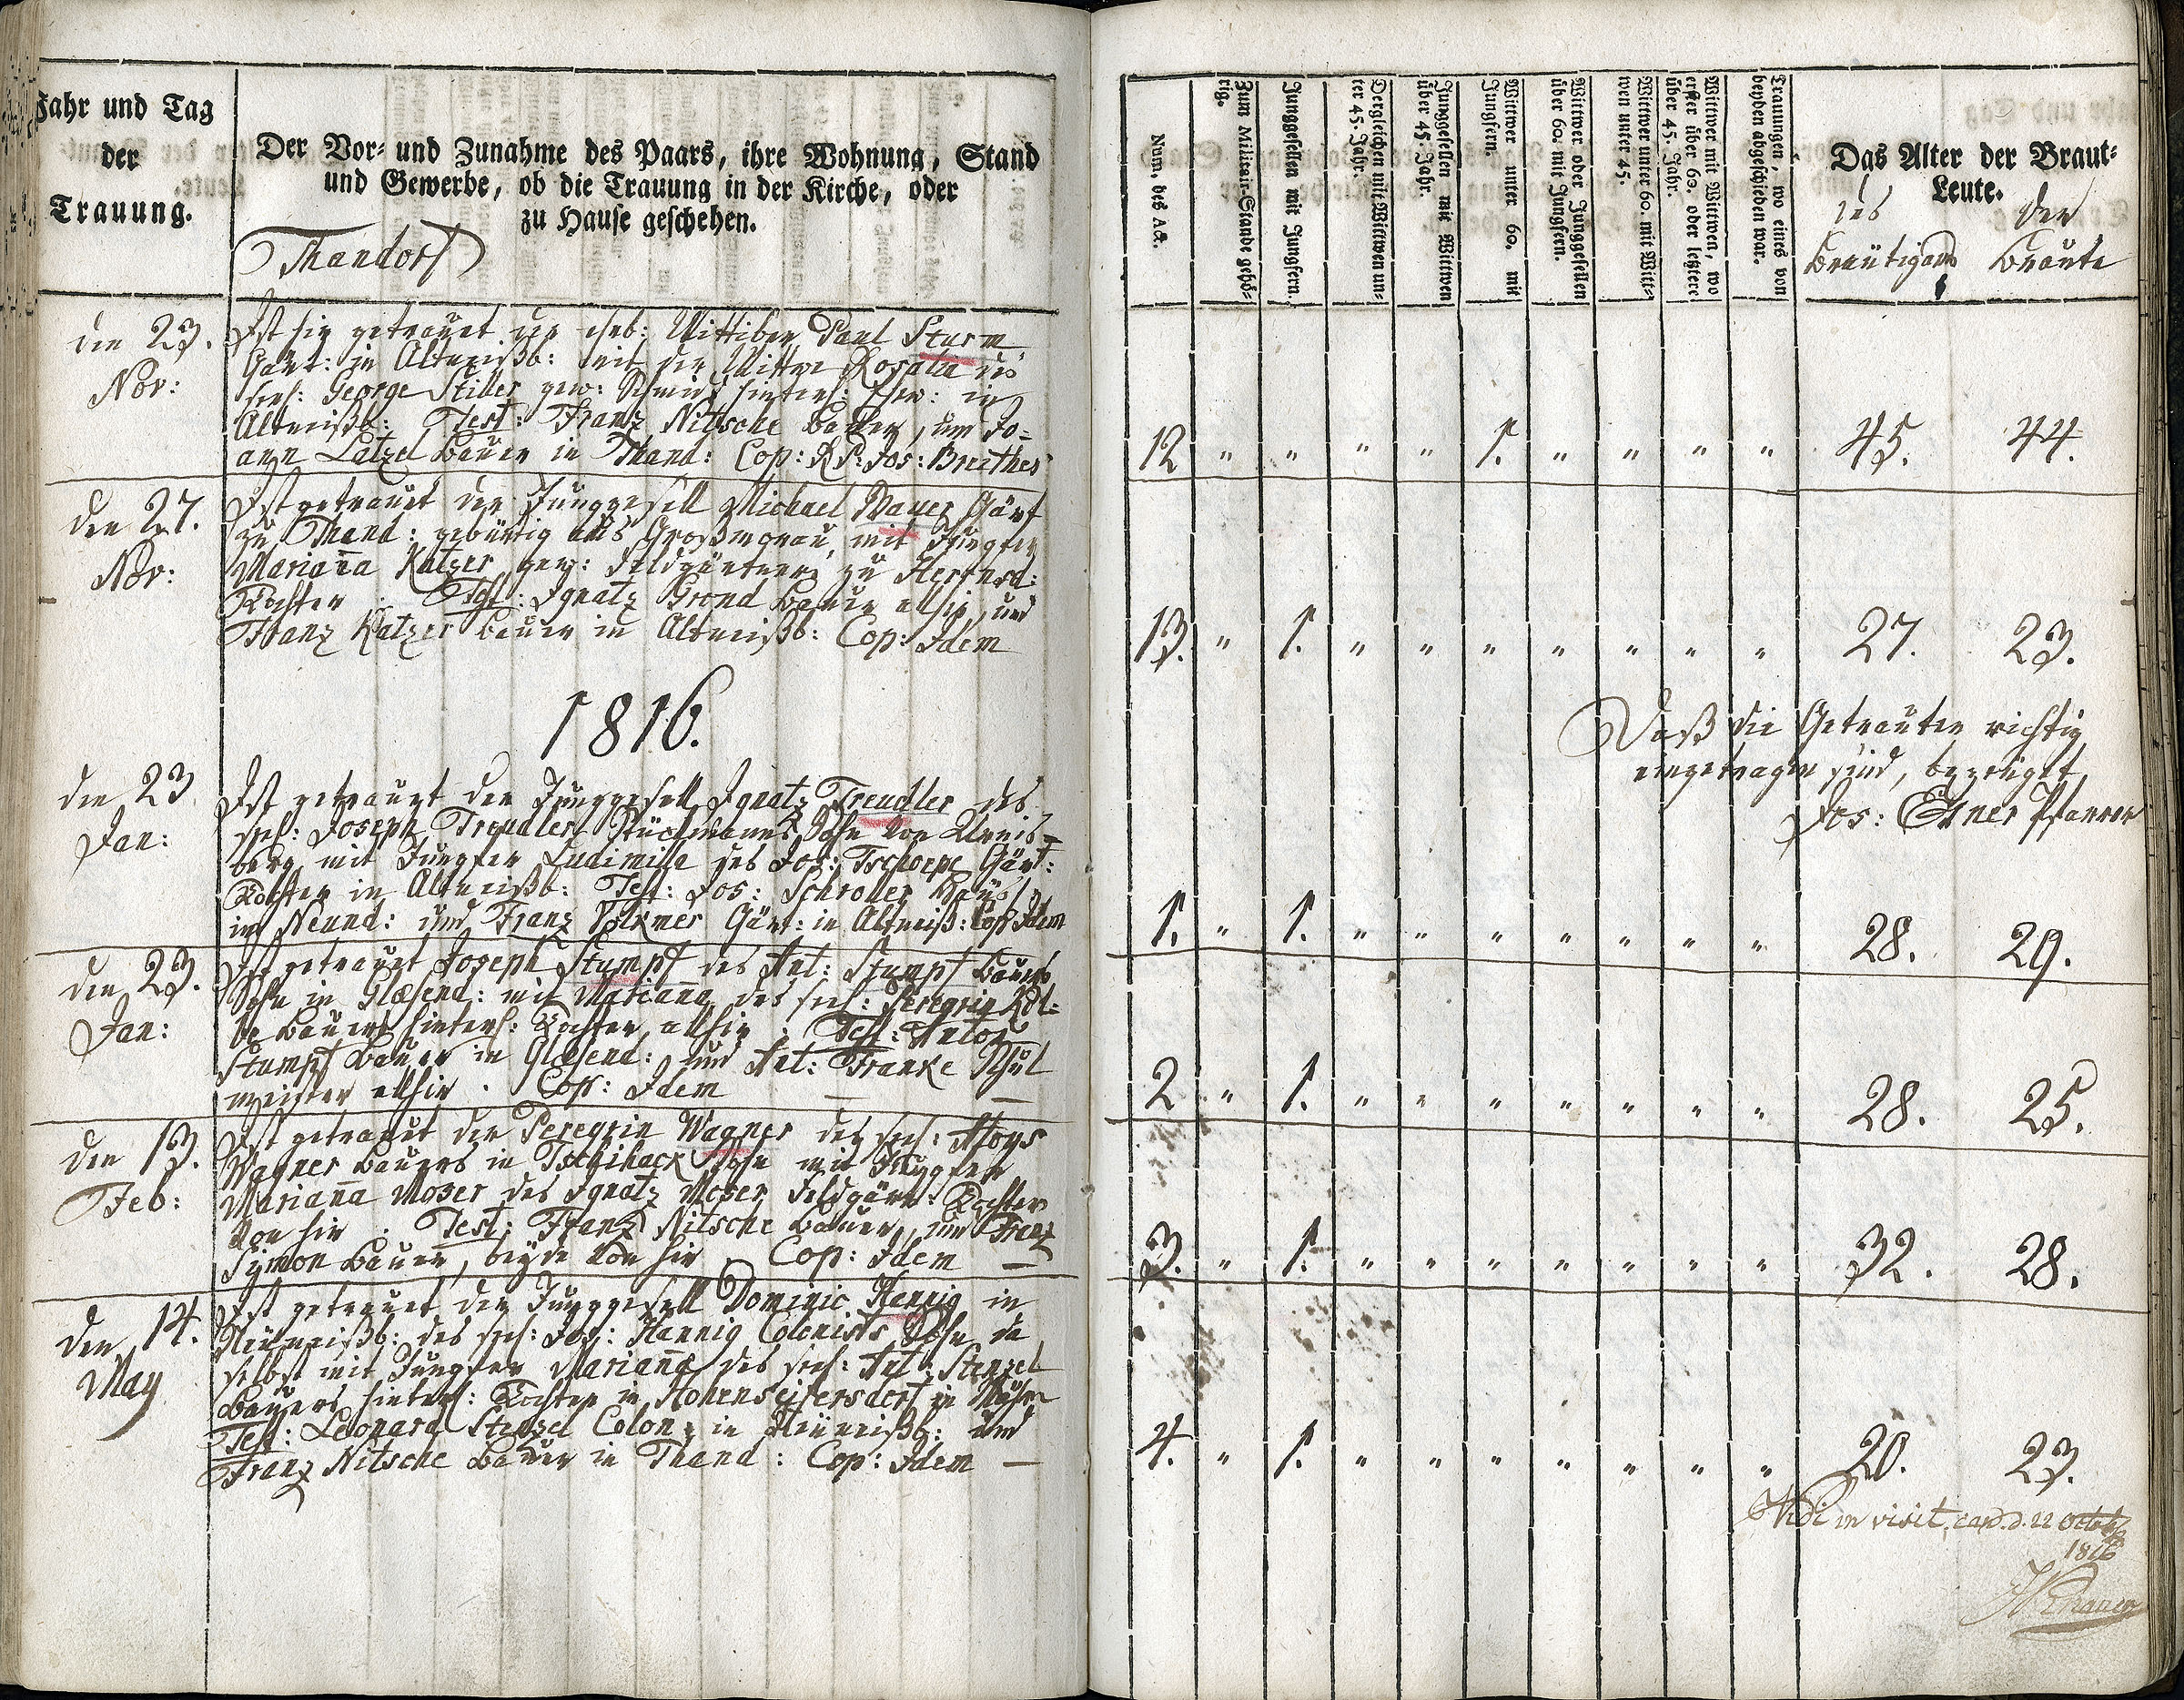 Jahr und Tag
der
Trauung.
Der Vor- und Zunahme des Paars, ihre Wohnung, Stand
und Gewerbe, ob die Trauung in der Kirche, oder
zu Hause geschehen.
Thandorf
den 23.
Nov:
Ist hie getrauet der Wittiber Paul Sturm
Gärt: in Altweißb: mit der Wittwe Rosalia des
seel: George Stiller gew: hinterl: in
Altweißb: Test: Franz Nitsche Bauer, und Jo=
ann Latzel Bauer in Thand: Cop: R P: Jos: Breither
den 27.
Nov:
Ist getrauet der Junggesell Michael Mayer Gärt
zu Thand: gebürtig aus mit Jungfer
Marianna Katzer gew: Feldgärtners zu
Tochter. Test: Ignatz Brond Bauer allhie, und
Franz Katzer Bauer in Altweißb: Cop: Idem
1816.
den 23
Jan:
Ist getrauet der Junggesell Ignatz Treudler des
seel: Joseph Treudler Sohn von
berg mit Jungfer Ludimilla des Jos: Tschoepe Gärt:
Tochter in Altweißb: Test: Jos: Schroller
in Neund: und Franz Volkmer Gärt: in Altweiß: Cop Idem
den 23.
Jan:
Ist getrauet Joseph Stumpf des Ant: Stumpf Bauers
Sohn in Glæsend: mit Marianna des seel: Peregrin Kol=
be Bauers hinterl: Tochter allhie. Test: Anton
Stumpf Bauer in Glæsend: und Ant: Franke Schul
meister allhie. Cop: Idem —
den 13.
Feb:
Ist getrauet der Peregrin Wagner des seel: Aloys
Wagner Bauers in Tschihack Sohn mit Jungfer
Marianna Moser des Ignatz Moser Feldgärt: Tochter
von hie. Test: Franz Nitsche Bauer, und Franz
Symon Bauer, beyde von hie Cop: Idem —
den 14.
May
Ist getrauet der Junggesell Dominic Hannig in
Neuweißb: des seel: Jos: Hannig Colonists Sohn da
selbst mit Jungfer Marianna des seel: Ant: Stenzel
Bauers hinterl: Tochter in Hohenseifersdorf in Mähr
Test: Leonard Stenzel Colon: in Neuweißb: und
Franz Nitsche Bauer in Thand: Cop: Idem —
Num. des Act.
Zum Militair-Stande gehö-
rig.
Junggesellen mit Jungfern.
Dergleichen mit Wittwen un-
ter 45. Jahr.
Junggesellen mit Wittwen
über 45. Jahr.
Wittwer unter 60. mit
Jungfern.
Wittwer oder Junggesellen
über 60. mit Jungfern.
Wittwer unter 60. mit Witt-
wen unter 45.
Wittwer mit Wittwen, wo
erster über 60. oder letztere
über 45. Jahr.
Trauungen, wo eines von
beyden abgeschieden war.
Das Alter der Braut-
Leute.
des der
Bräutigam Braute
12 " " " " 1. " " " " 45. 44.
13. " 1. " " " " " " " 27. 23.
Daß die Getrauten richtig
eingetragen sind, bezeuget
Jos: Elner Pfarrer
1. " 1. " " " " " " " 28. 29.
2 " 1. " " " " " " " 28. 25.
3. " 1. " " " " " " " 32. 28.
4. " 1. " " " " " " " 20. 23.
Vidi in visit. can. d. 22 Octob
1816